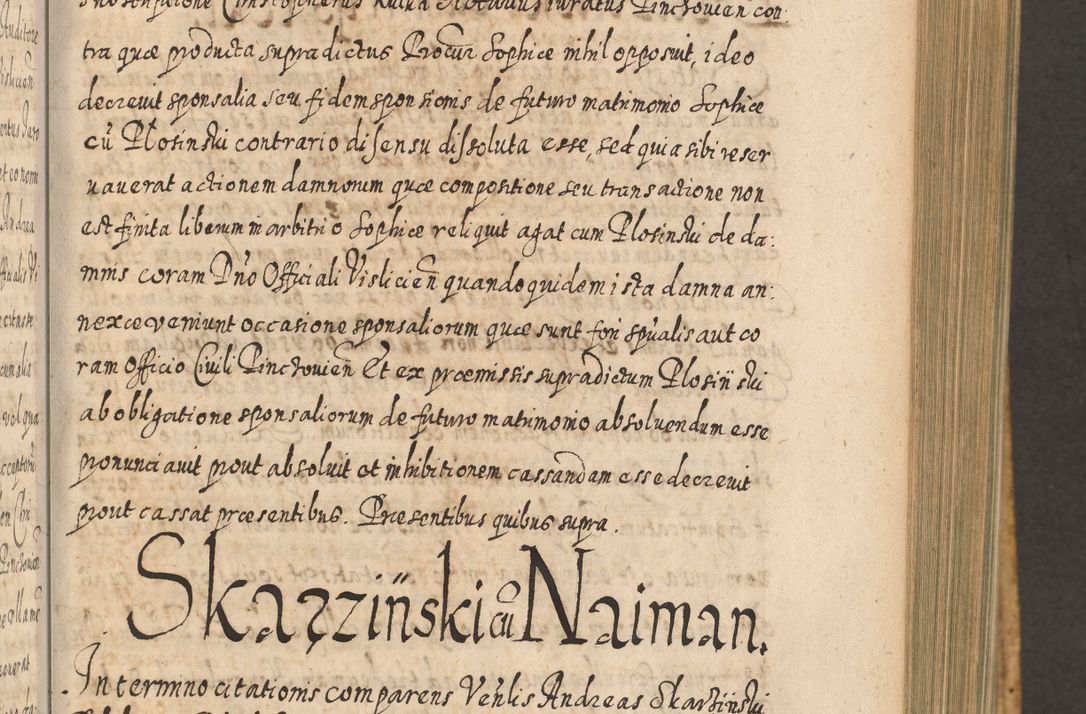 tra quæ producta supradictus Procur Sophiæ nihil opposuit, ideo
decrevit sponsalia seu fidem sponsionis de futuro matrimonio Sophiæ
cũ Plosinski contrario disensu dissoluta esse, sed quia sibi reser
vauerat actionem damnorum quæ compositione seu transactione non
est finita liberum in arbitrio Sophiæ reliquit agat cum Plosinski de da:
mnis coram Dño Officiali Visliciens quandoquidem ista damna an:
nexe veniunt occasione sponsaliorum quæ sunt fori spũalis aut co
ram Officio Civili Pinctovien Et ex præmissis supradictum Plosiński
ab obligatione sponsaliorum de futuro matrimonio absoluendum esse
pronunciavit prout absoluit et inhibitionem cassandam esse decrevit
prout cassat præsentibus. Præsentibus quibus supra.
Skarzziński cũ Naiman.
In termino citationis comparens Veñlis Andreas Skarziński